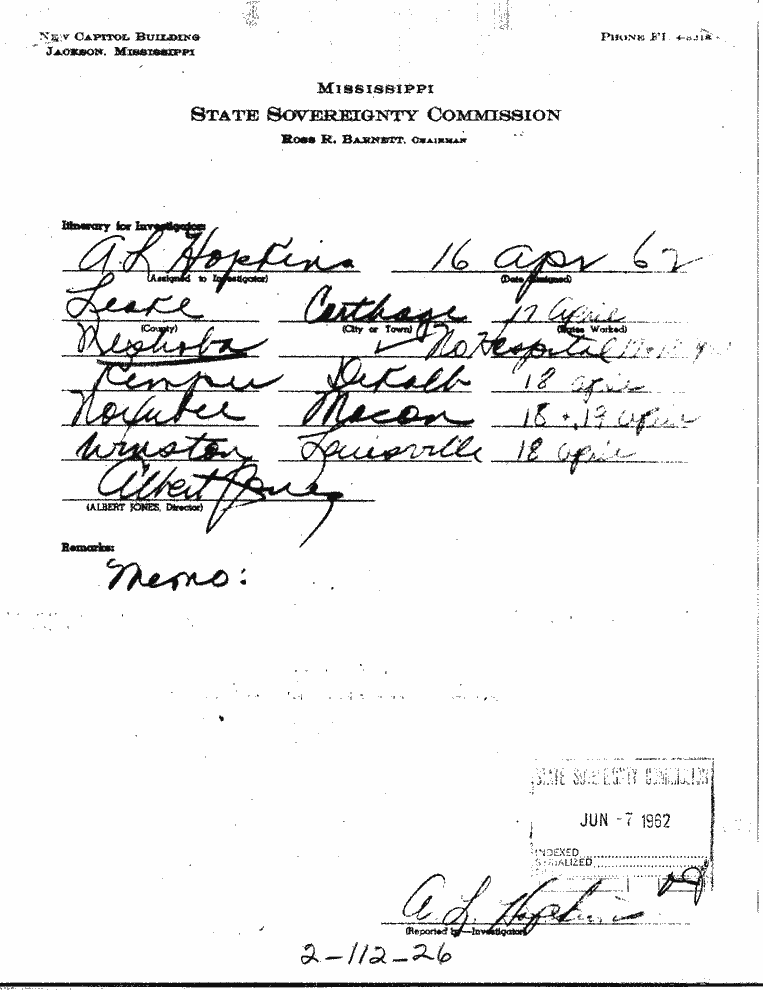 NEW CAPITOL BUILDING
JACKSON, MISSISSIPPI
PHONE FL
MISSISSIPPI
STATE SOVEREIGNTY COMMISSION
ROSS R. BARNETT, CHAIRMAN
Itinerary for Investigator:
A L Hopkins 16 Apr 62
(Assigned to Investigator) (Date Assigned)
Leake Carthage 17 April
(County) (City or Town) (Dates Worked)
Neshoba ✓ No Hospital
Kemper DeKalb 18 april
Noxubee Macon 18 + 19 april
Winston Louisville 18 april
Albert Jones
(ALBERT JONES, Director)
Remarks:
Memo:
STATE SOVEREIGNTY COMMISSION
JUN -7 1962
INDEXED
SERIALIZED
A. L. Hopkins
(Reported by—Investigator)
2-112-26